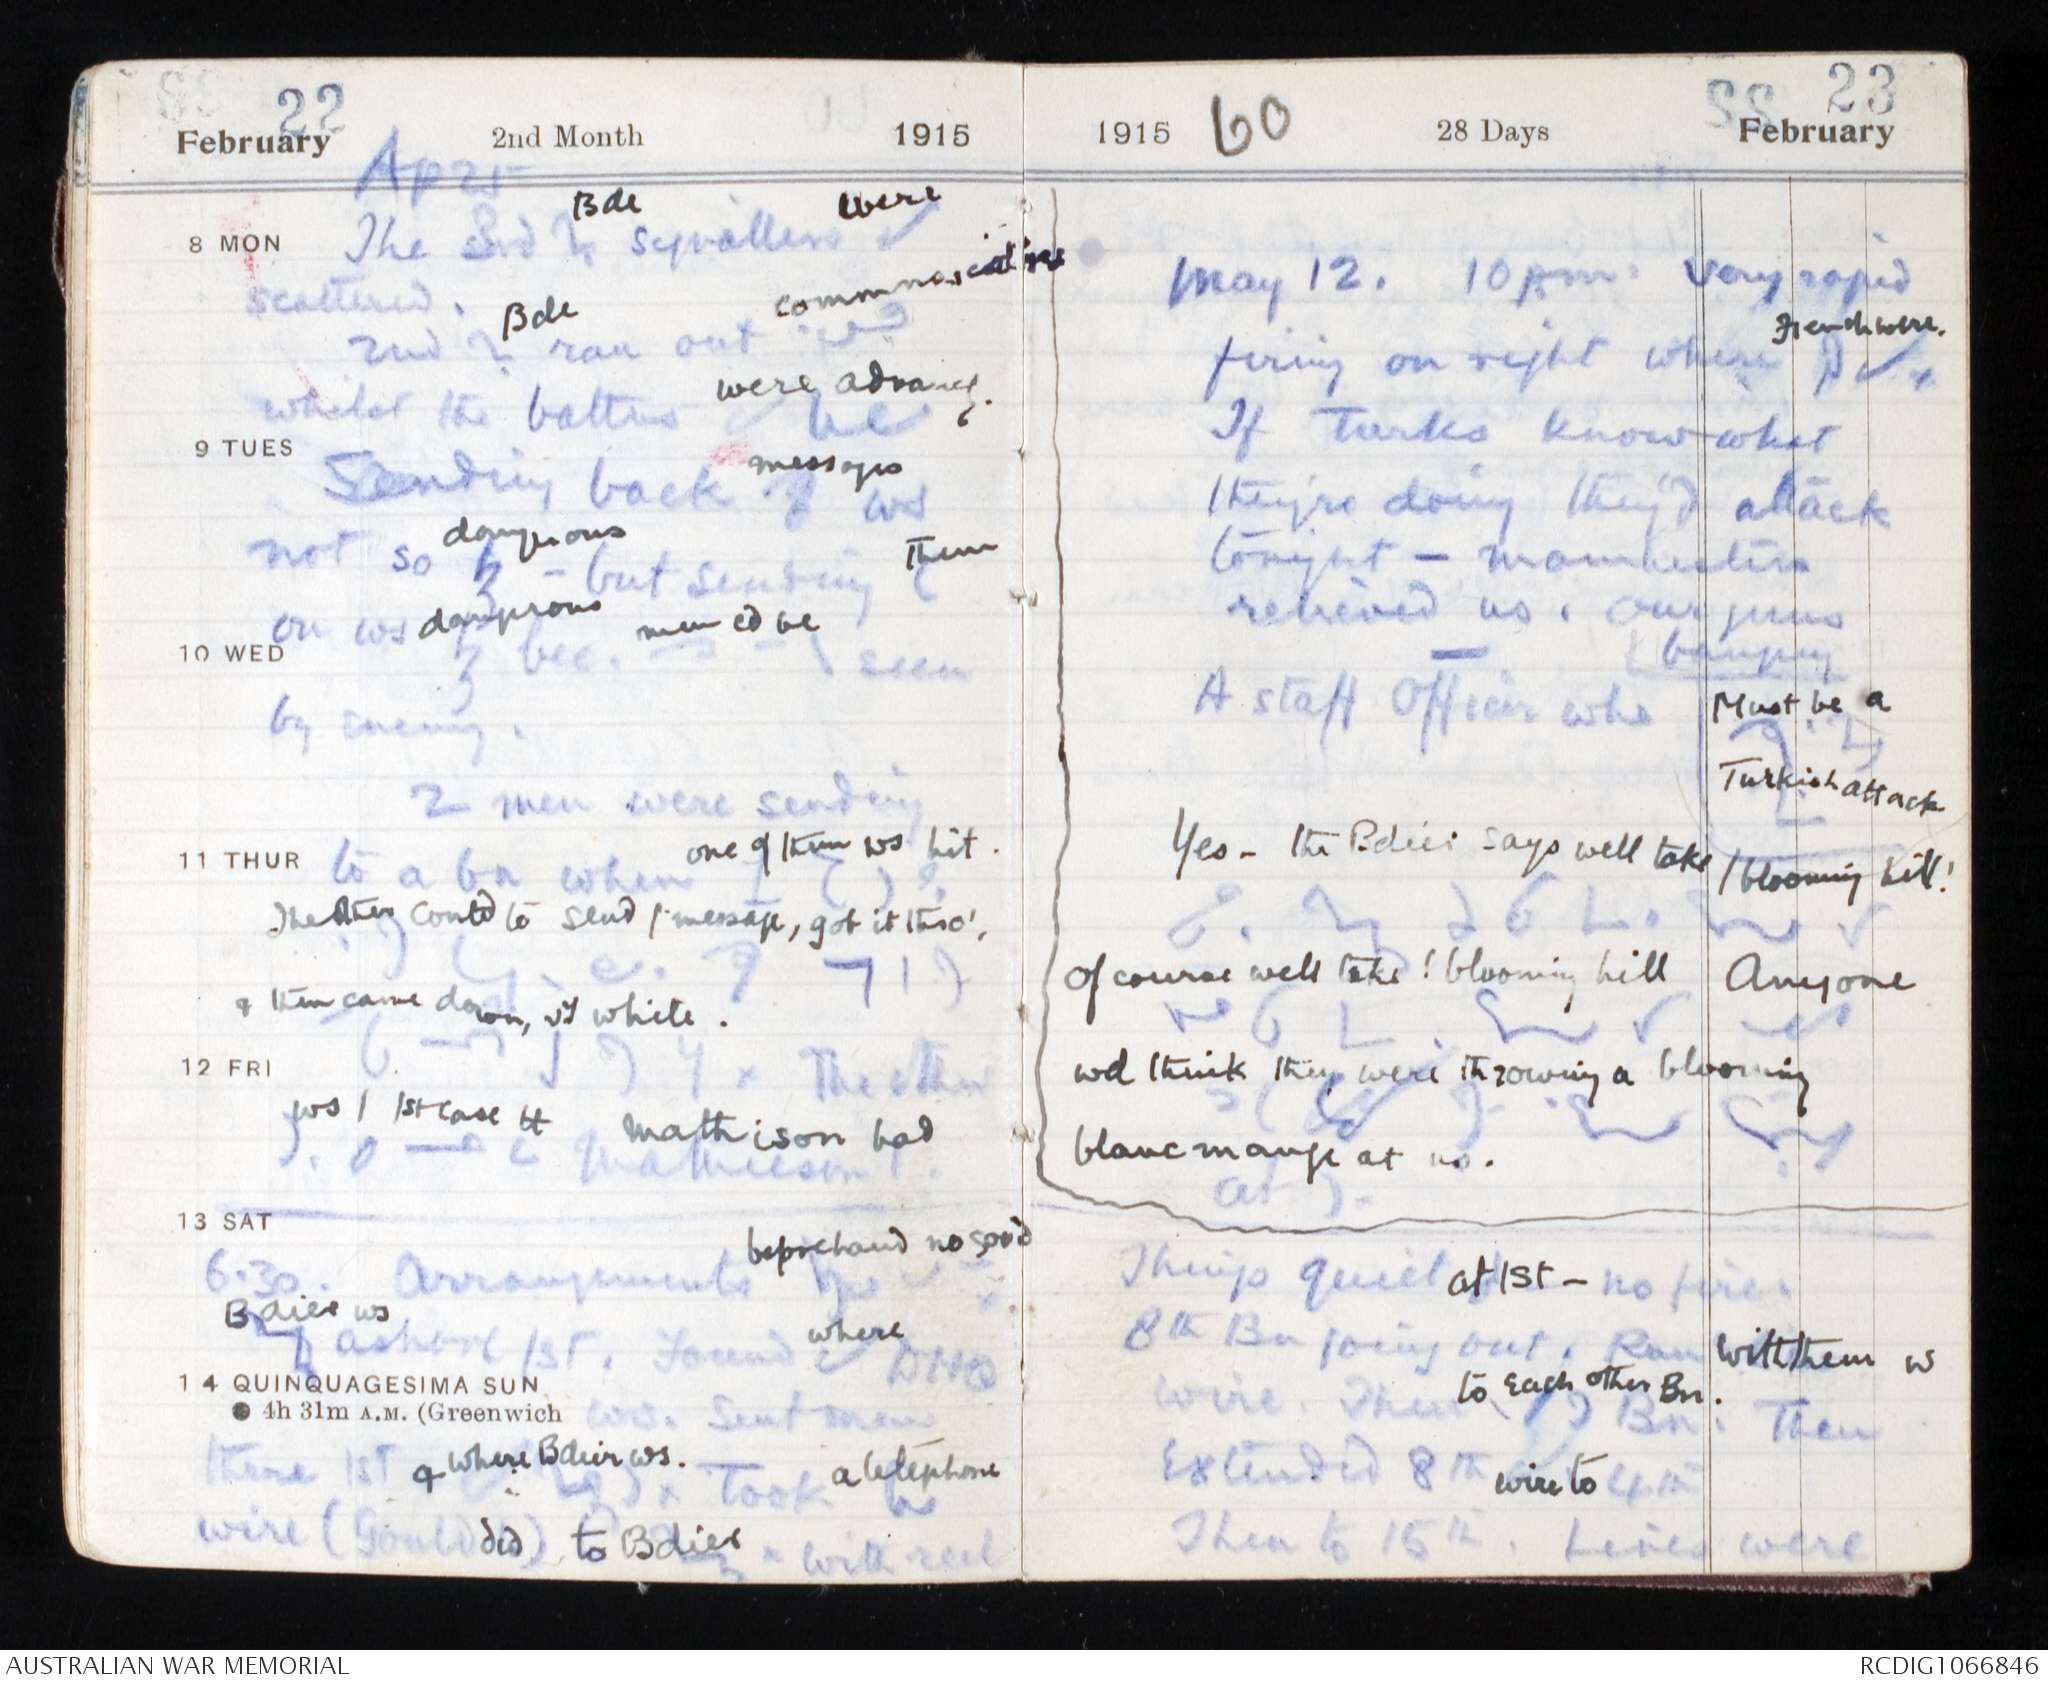 22
February 2nd Month 1915
Ap 25
Bde were
8 MON The 3rd signallers
scattered.
Bde communications
2nd ran out
were advancg.
whilst the battns
9 TUES
messages
Sending back ws
dangerous them
not so - but sending
dangerous
10 WED
on ws bec. seen
by enemy.
2 men were sending
one of them ws hit.
11 THUR to a bn when
The other contd to send / message, got it thro',
& then came down, white.
12 FRI The other
ws / 1st case tt Mathison had
Mathieson
13 SAT
beforehand no good
6.30. Arrangements
Bdier ws
ashore 1st. Found where DHQ
14 QUINQUAGESIMA SUN
4h 31m A.M. (Greenwich ws. Sent men
there 1st & where Bdier ws. Took a telephone
wire (Gould did) to Bdier with reel
23
1915 60 28 Days February
May 12. 10 pm. Very rapid
French were.
firing on right where
If Turks know what
they're doing they'd attack
tonight - Manchesters
relieved us. Our guns
banging
A staff officer who Must be a
Turkish attack
Yes - the Bdier says well take / blooming hill!
Of course well take / blooming hill Anyone
wd think they were throwing a blooming
blancmange at us.
at
Things quiet at 1st - no fire.
8th Bn going out. Ran with them
wire. Then to each other Bn. Then
Extended 8th wire to 4th
Then to 15th. Lines were
AUSTRALIAN WAR MEMORIAL RCDIG1066846